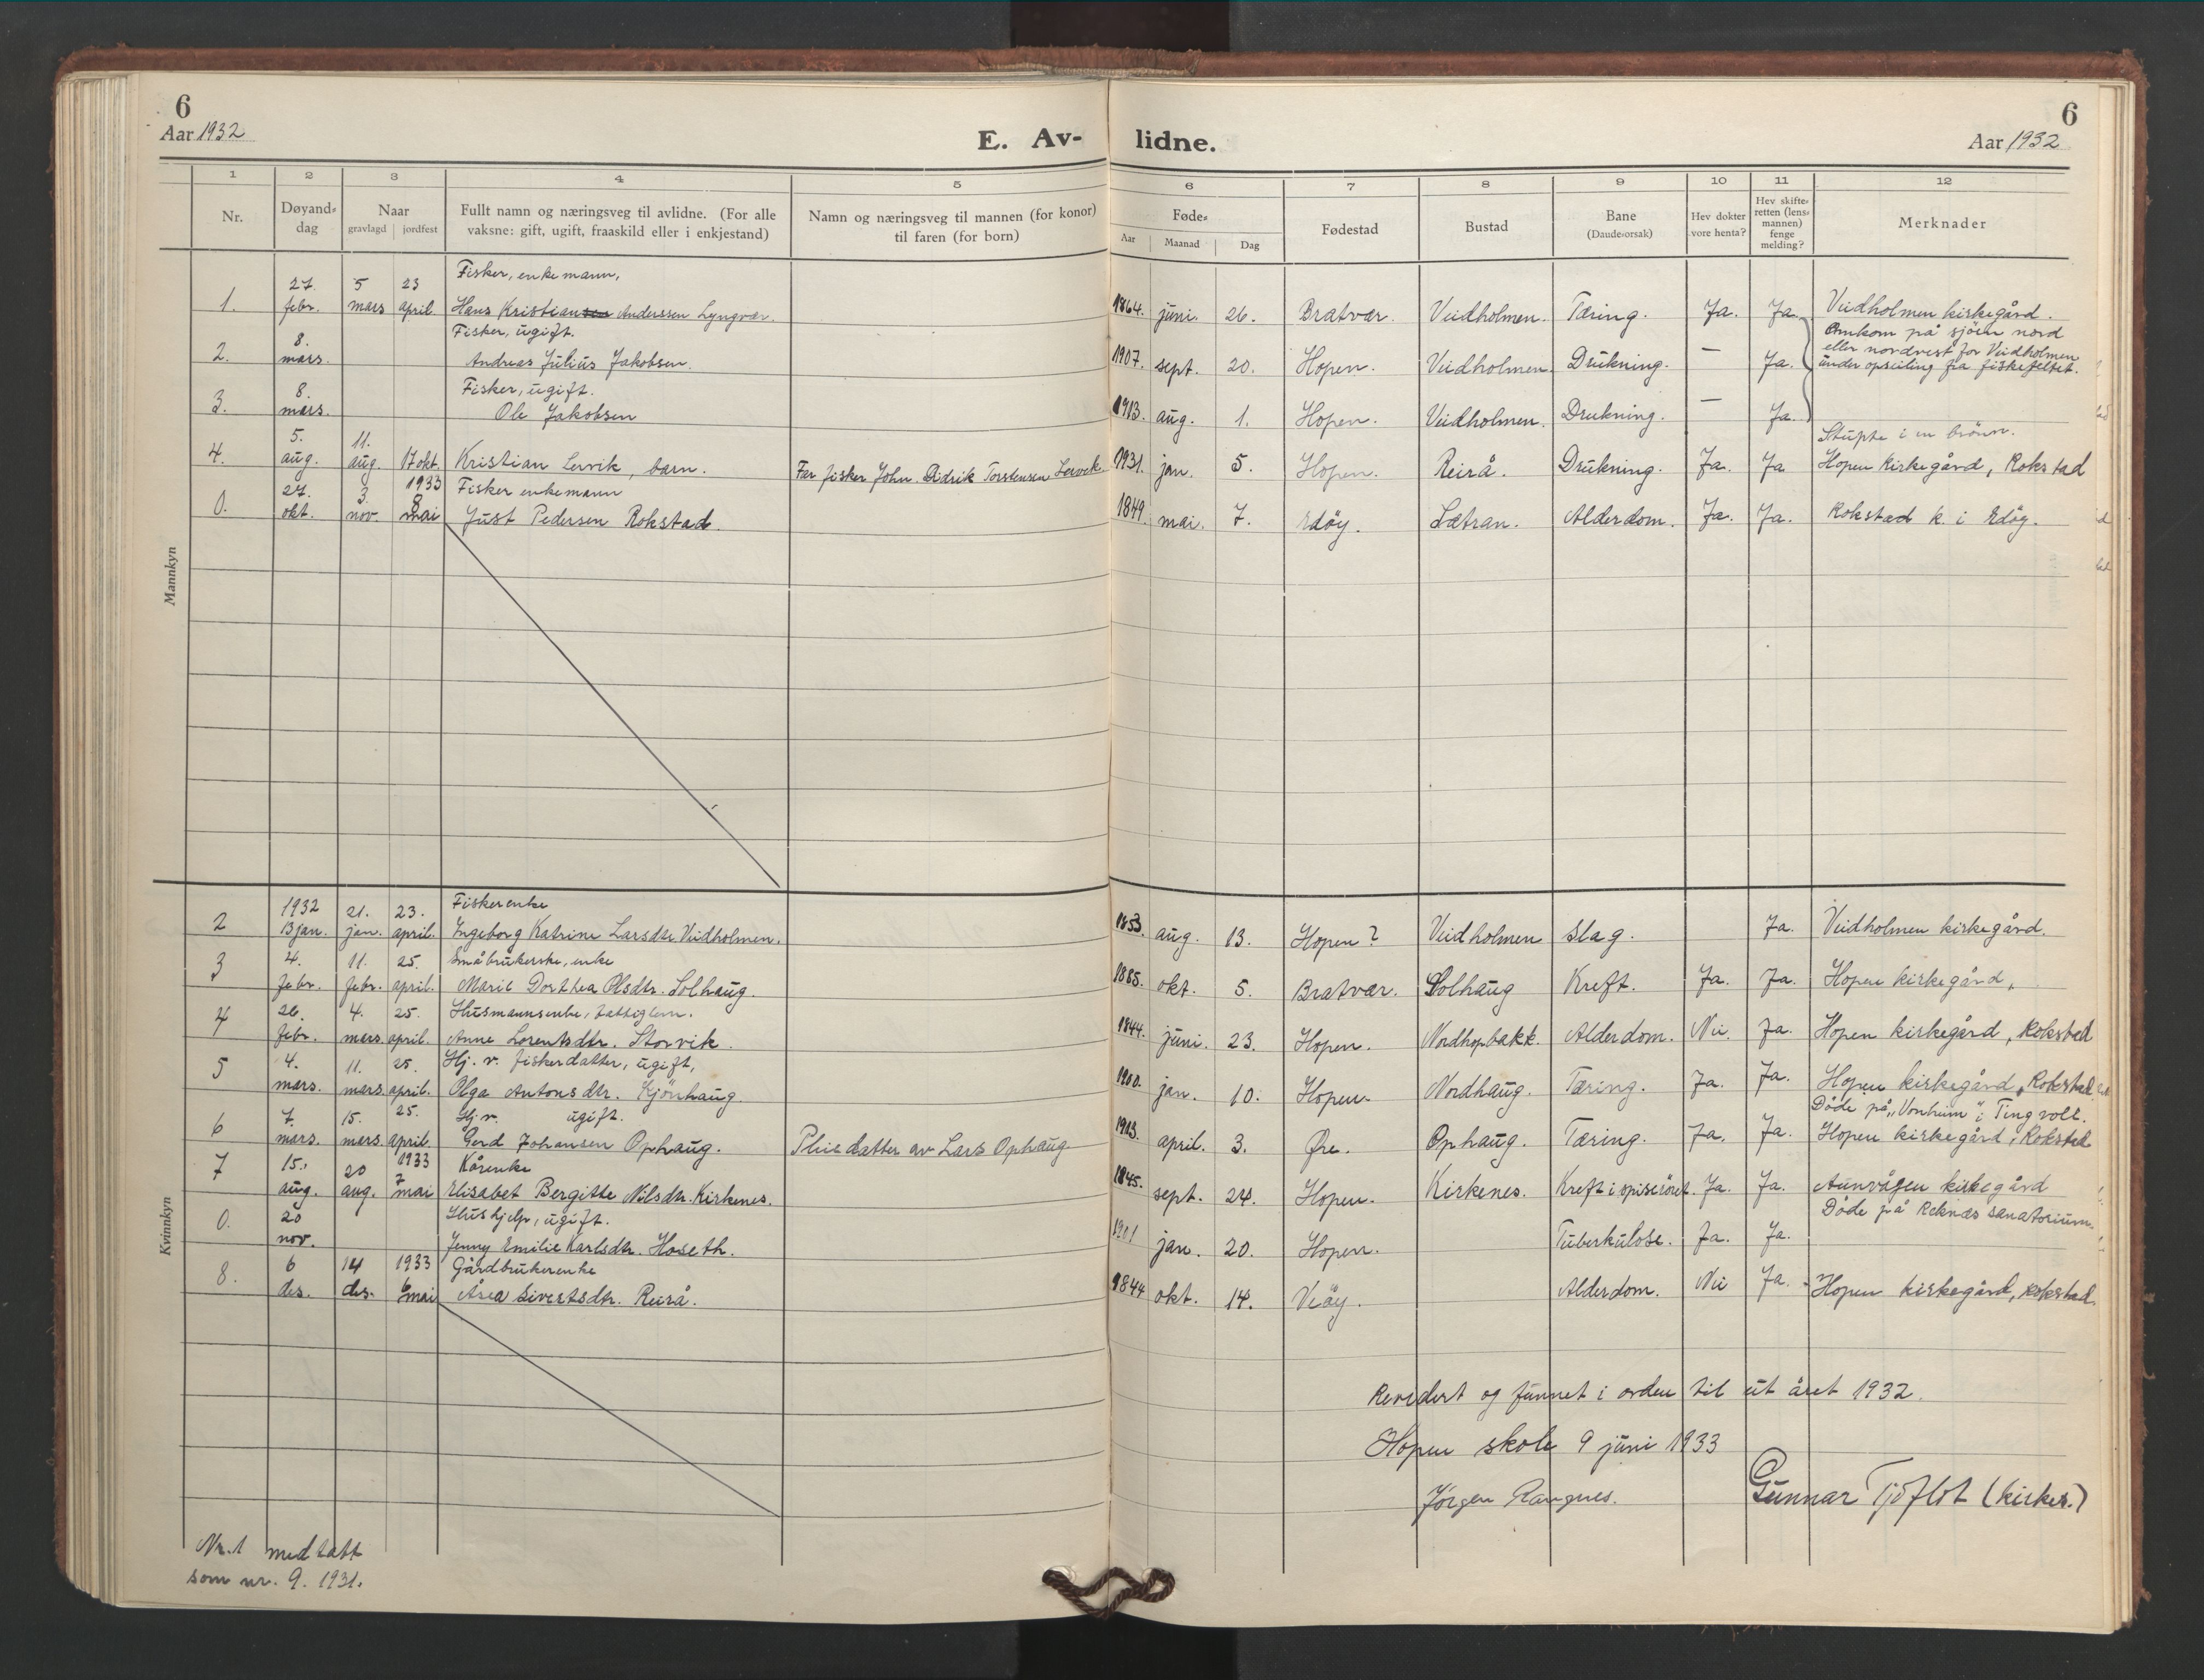 6
Aar 1932
E. Av-
lidne.
6
Aar 1932
1 2 3 4 5 6 7 8 9 10 11 12
Nr.
Døyand-
dag
Naar
gravlagd | jordfest
Fullt namn og næringsveg til avlidne. (For alle
vaksne: gift, ugift, fraaskild eller i enkjestand)
Namn og næringsveg til mannen (for konor)
til faren (for born)
Føde-
Aar | Maanad | Dag
Fødestad
Bustad
Bane
(Daude-orsak)
Hev dokter
vore henta?
Hev skifte-
retten (lens-
mannen)
fenge
melding?
Merknader
Mannkyn
27. 5 23 Fisker, enkemann,
1. febr. mars april Hans Kristian Anderssen Lyngvær. 1864. juni. 26. Bratvær. Veidholmen. Tæring. Ja. Ja. Veidholmen kirkegård.
8. Fisker, ugift. Omkom på sjöen nord
eller nordvest for Veidholmen
2. mars. Andreas Julius Jakobsen. 1907. sept. 20. Hopen. Veidholmen. Drukning. — Ja. under opseiling fra fiskefeltet.
8. Fisker, ugift.
3. mars. Ole Jakobsen 1913. aug. 1. Hopen. Veidholmen. Drukning. — Ja.
5. 11. Stupte i en brönn.
4. aug. aug. 17 okt. Kristian Lervik, barn. Far fisker John Didrik Torstensen Lervik 1931. jan. 5. Hopen. Reirå. Drukning. Ja. Ja Hopen kirkegård, Rokstad
27. 3. 1933 Fisker enkemann
0. okt. nov. 8 mai Just Pedersen Rokstad. 1849. mai. 7. Edöy. Lætran. Alderdom. Ja. Ja. Rokstad k. i Edöy.
Kvinnkyn
1932 21. 23. Fiskerenke
2 13 jan. jan. april. Ingeborg Katrine Larsdtr. Veidholmen. 1853. aug. 13. Hopen? Veidholmen Slag. Ja. Veidholmen kirkegård.
4. 11. 25. Småbrukerske, enke
3 febr. febr. april. Marie Dorthea Olsdtr. Solhaug. 1885. okt. 5. Bratvær. Solhaug Kreft. Ja. Ja. Hopen kirkegård,
26. 4. 25. Husmannsenke, fattiglem.
4 febr. mars. april. Anne Lorentsdtr. Storvik. 1844. juni. 23. Hopen. Nordhopbakk. Alderdom. Nei. Ja. Hopen kirkegård, Rokstad
4. 11. 25. Hj. v. fiskerdatter, ugift,
5 mars. mars. april. Olga Antonsdtr. Kjönhaug. 1900. jan. 10. Hopen. Nordhaug. Tæring. Ja. Ja. Hopen kirkegård, Rokstad
7. 15. 25. Hj. v. ugift. Döde på „Vonheim" i Tingvoll.
6 mars. mars. april. Gerd Johansen Ophaug. Pleiedatter av Lars Ophaug 1913. april. 3. Øre. Ophaug. Tæring. Ja. Ja. Hopen kirkegård, Rokstad
15. 20 1933 Kårenke
7 aug. aug. 7 mai Elisabet Bergitte Nilsdtr. Kirkenes. 1845. sept. 24. Hopen. Kirkenes. Kreft i spiseröret. Ja. Ja. Aunvågen kirkegård
20 Hushjelp, ugift. Döde på Reknes sanatorium.
0. nov. Jenny Emilie Karlsdtr. Hoseth. 1901 jan. 20. Hopen. Tuberkulose. Ja. Ja.
6 14 1933 Gårdbrukerenke
8. des. des. 6 mai Åsea Sivertsdtr. Reirå. 1844 okt. 14. Veöy. Alderdom. Nei Ja. Hopen kirkegård, Rokstad.
Revidert og funnet i orden til ut året 1932.
Hopen skole 9 juni 1933
Jörgen Rangnes. Gunnar Tjöflot (kirkes.)
Nr. 1 medtatt
som nr. 9. 1931.